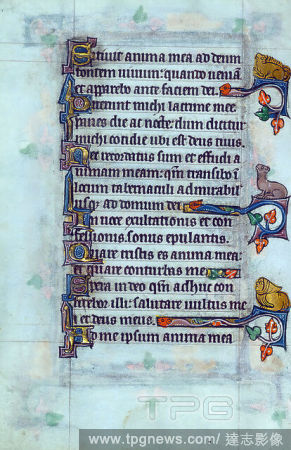 Sitiuit anima mea ad deum
fontem uiuum: quando ueniā
et apparebo ante faciem dei
fuerunt michi lacrime mee
panes die ac nocte: dum dicitur
michi cotidie ubi est deus tuus.
hec recordatus sum et effudi a
nimam meam: qm̄ transibo ī
locum tabernaculi admirabil
usq; ad domum dei
In uoce exultationis et con
fessionis. sonus epulantis.
Quare tristis es anima mea:
et quare conturbas me
Spera in deo qm̄ adhuc con
fitebor illi: salutare uultus me
i et deus meus.
me ipsum anima mea
TPG
www.tpgnews.com/ 達志影像